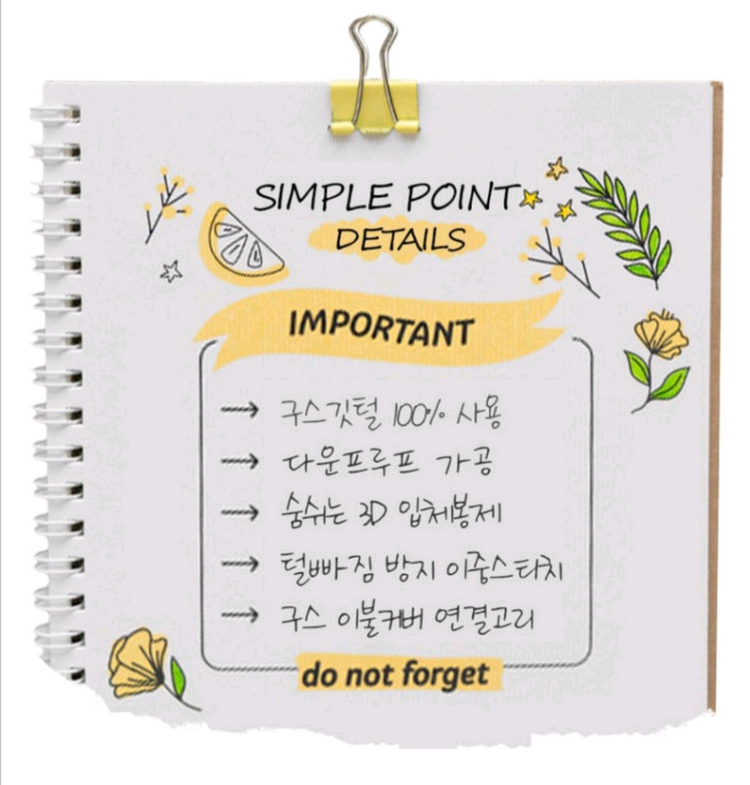 SIMPLE POINT
DETAILS
IMPORTANT
구스깃털 100% 사용
다운프루프 가공
숨쉬는 3D 입체봉제
털빠짐 방지 이중스티치
구스 이불커버 연결고리
do not forget